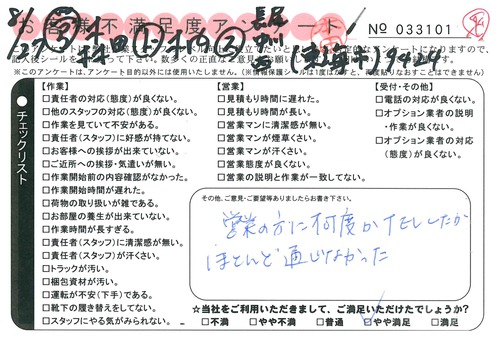 お客様不満足度アンケート
No 033101
※このアンケートは、アンケート目的以外には使用いたしません。
チェックリスト
【作業】
□責任者の対応(態度)が良くない。
□他のスタッフの対応(態度)が良くない。
□作業を見ていて不安がある。
□責任者(スタッフ)に好感が持てない。
□お客様への挨拶が出来ていない。
□ご近所への挨拶・気遣いが無い。
□作業開始前の内容確認がなかった。
□作業開始時間が遅れた。
□荷物の取り扱いが雑である。
□お部屋の養生が出来ていない。
□作業時間が長すぎる。
□責任者(スタッフ)に清潔感が無い。
□責任者(スタッフ)が汗くさい。
□トラックが汚い。
□梱包資材が汚い。
□運転が不安(下手)である。
□靴下の履き替えをしてない。
□スタッフにやる気がみられない。
【営業】
□見積もり時間に遅れた。
□見積もり時間が長い。
□営業マンに清潔感が無い。
□営業マンが煙草くさい。
□営業マンが汗くさい。
□営業態度が良くない。
□営業の説明と作業が一致してない。
【受付・その他】
□電話の対応が良くない。
□オプション業者の説明
・作業が良くない。
□オプション業者の対応
(態度)が良くない。
その他、ご意見・ご要望等ありましたらお書き下さい。
営業の方に何度かTELしたが
ほとんど通じなかった
☆当社をご利用いただきまして、ご満足いただけたでしょうか?
□不満 □やや不満 □普通 □やや満足 □満足